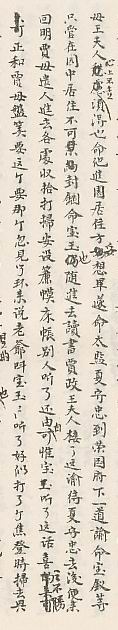 母王夫人心上不喜愁慮須得也命他進園居住方妥想畢遂命太監夏忠到榮國府下一道諭命宝釵等
只管在园中居住不可禁約封錮命宝玉仍随進去讀書賈政王夫人接了这諭待夏忠去後便来
回明賈母遣人進去各處收拾打掃安設簾幔床帳别人听了还自可惟宝玉听了这話喜
正和賈母盤筭要这个要那个忽見丫环来說老爺叫宝玉宝玉听了好似打了个焦雷登時掃去兴